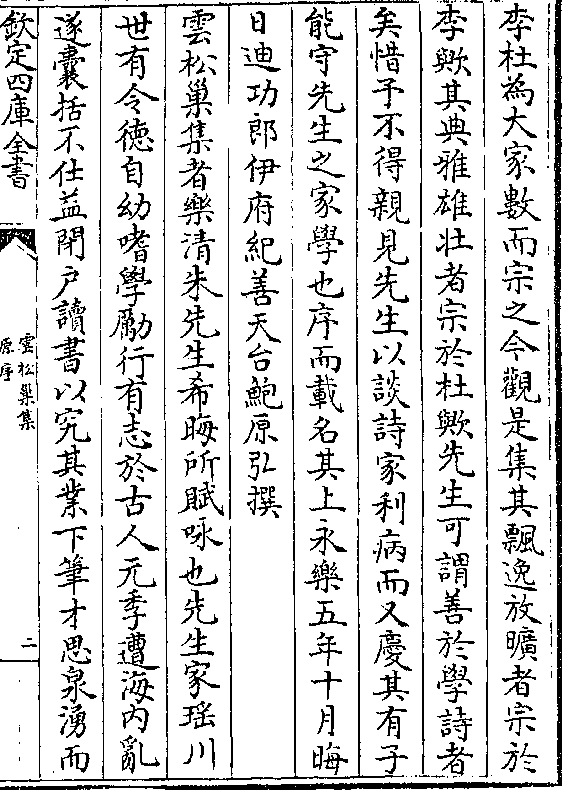 李杜為大家數而宗之今觀是集其飄逸放曠者宗於
李歟其典雅雄壯者宗於杜歟先生可謂善於學詩者
矣惜予不得親見先生以談詩家利病而又慶其有子
能守先生之家學也序而載名其上永樂五年十月晦
日迪功郎伊府紀善天台鮑原弘撰
雲松巢集者樂清朱先生希晦所賦咏也先生家瑶川
世有令德自幼嗜學勵行有志於古人元季遭海内亂
遂囊括不仕益閉户讀書以究其業下筆才思泉湧而
欽定四庫全書
雲松巢集
原序
二